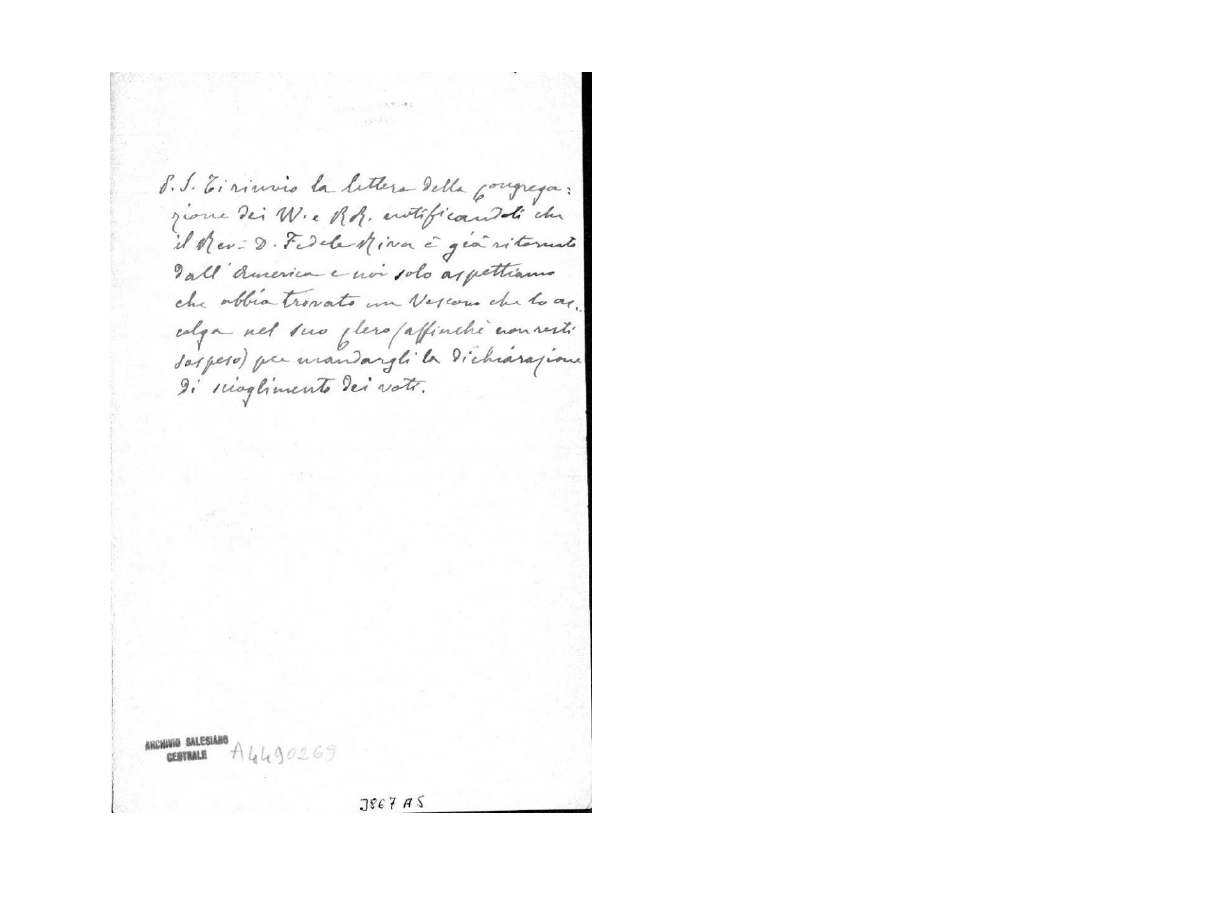 P.S. Ti rinvio la lettera della Congrega:
zione dei VV. e RR. notificandoti che
il Rev. D. Fedele Riva è già ritornato
dall'America e noi solo aspettiamo
che abbia trovato un Vescovo che lo ac.
colga nel suo Clero (affinchè non resti
sospeso) per mandargli la dichiarazione
di scioglimento dei voti.
ARCHIVIO SALESIANO
CENTRALE
A4490269
3867 A5